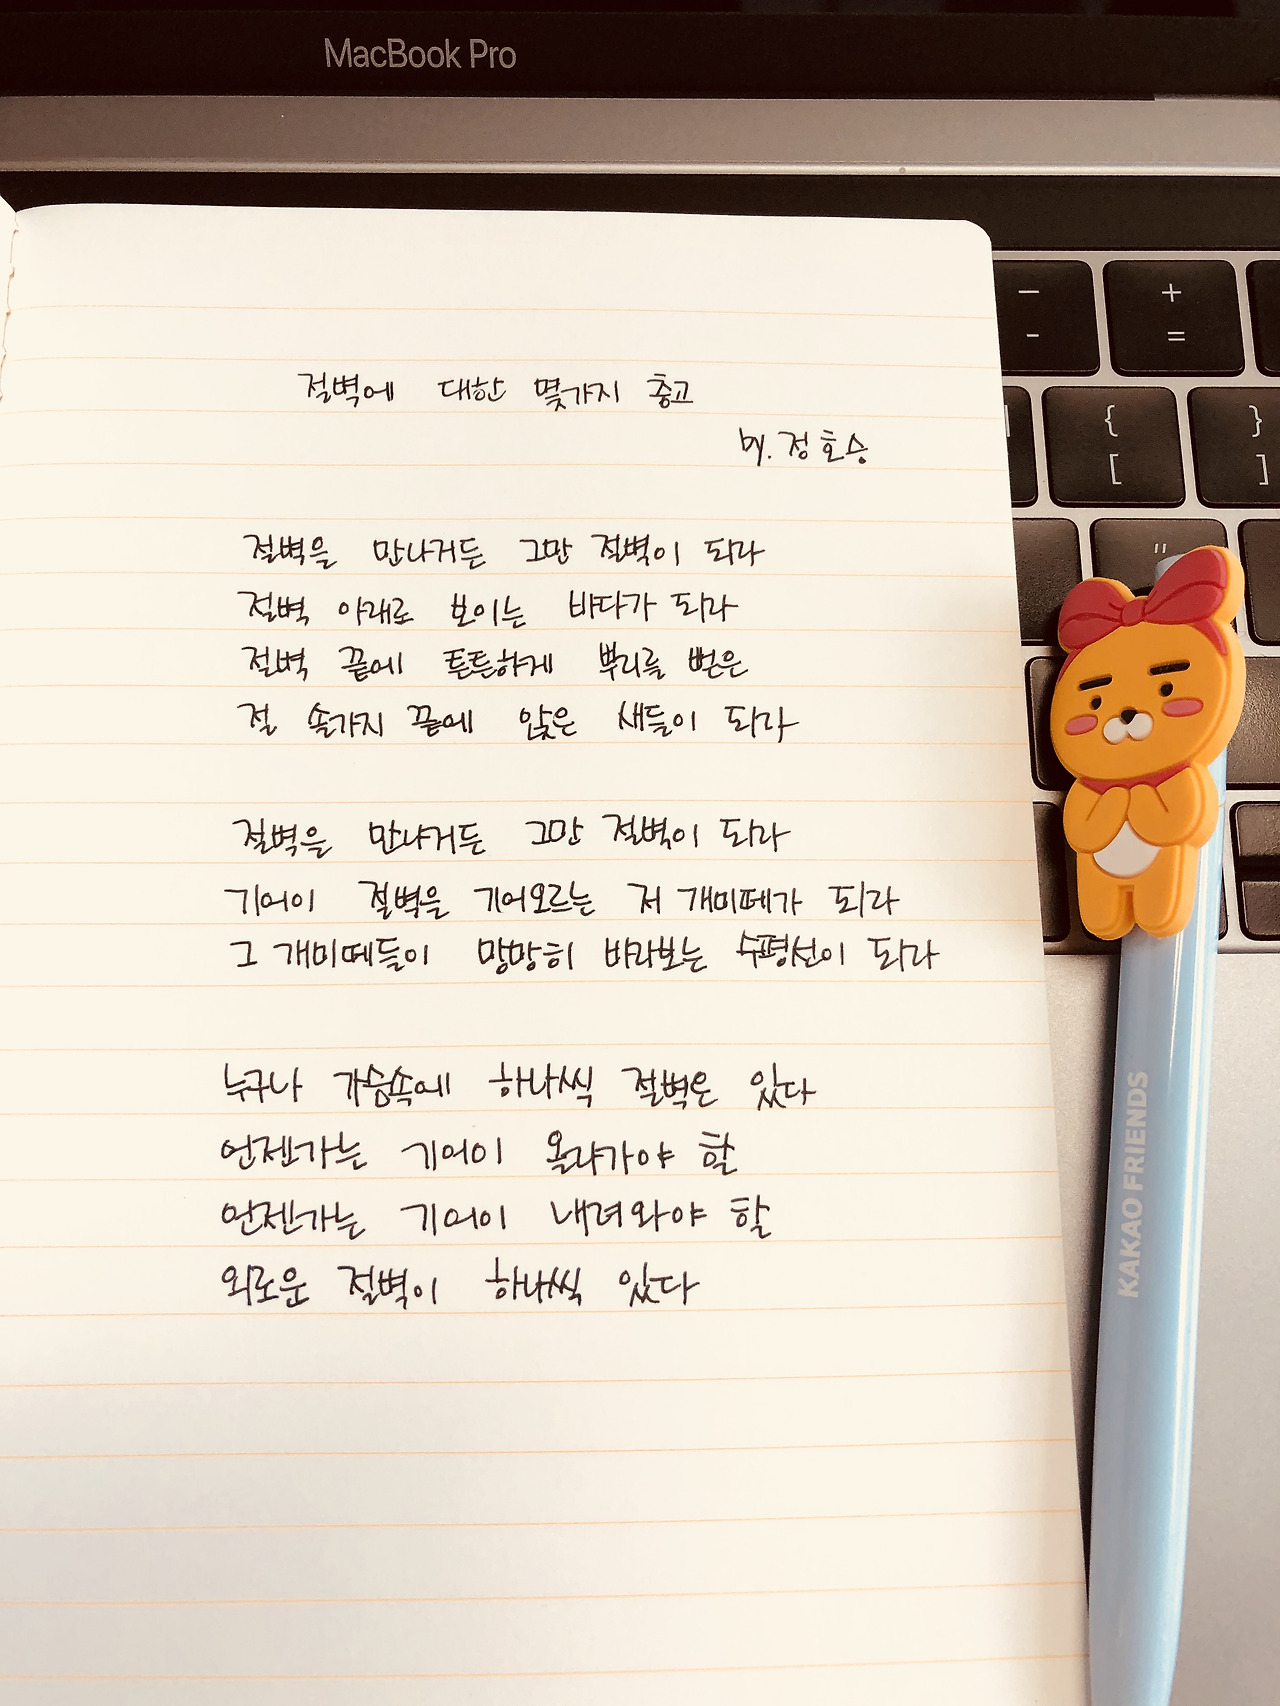 MacBook Pro
절벽에 대한 몇가지 충고
by. 정호승
절벽을 만나거든 그만 절벽이 되라
절벽 아래로 보이는 바다가 되라
절벽 끝에 튼튼하게 뿌리를 뻗은
절 솔가지 끝에 앉은 새들이 되라
절벽을 만나거든 그만 절벽이 되라
기어이 절벽을 기어오르는 저 개미떼가 되라
그 개미떼들이 망망히 바라보는 수평선이 되라
누구나 가슴속에 하나씩 절벽은 있다
언젠가는 기어이 올라가야 할
언젠가는 기어이 내려와야 할
외로운 절벽이 하나씩 있다
— -
+ =
{ [
} ]
"
KAKAO FRIENDS